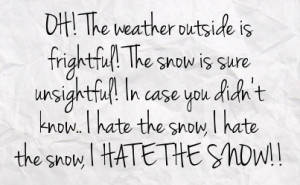 OH! The weather outside is
frightful! The snow is sure
unsightful! In case you didn't
know.. I hate the snow, I hate
the snow, I HATE THE SNOW!!